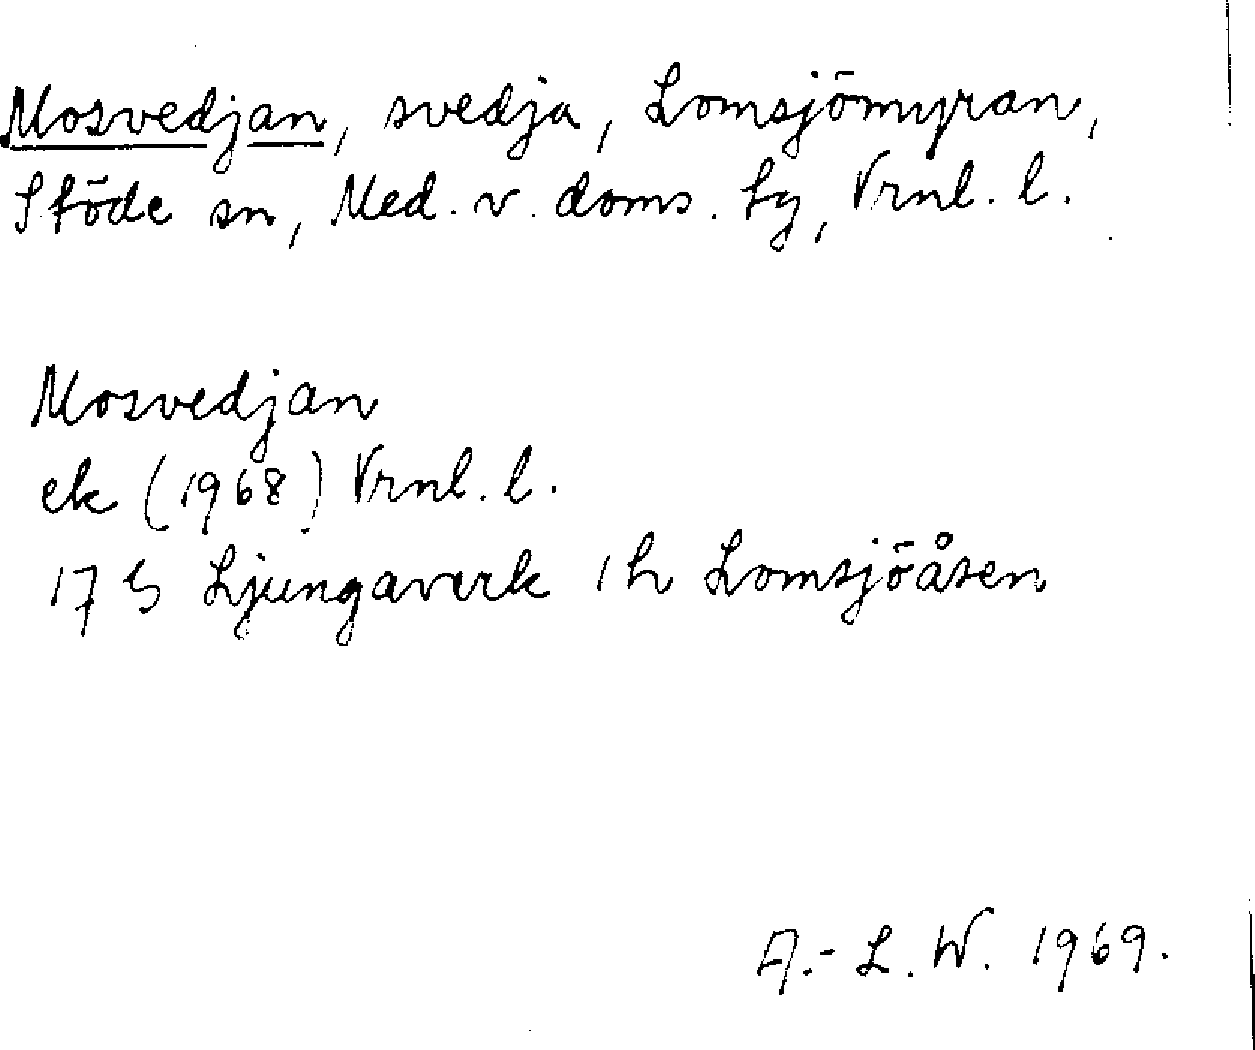 Mosvedjan, svedja, Lomsjömyran,
Stöde sn, Med. v. doms. tg, Vrnl. l.
Mosvedjan
ek (1968) Vrnl. l.
17 G Ljungaverk 1 h Lomsjöåsen
A.-L.W. 1969.